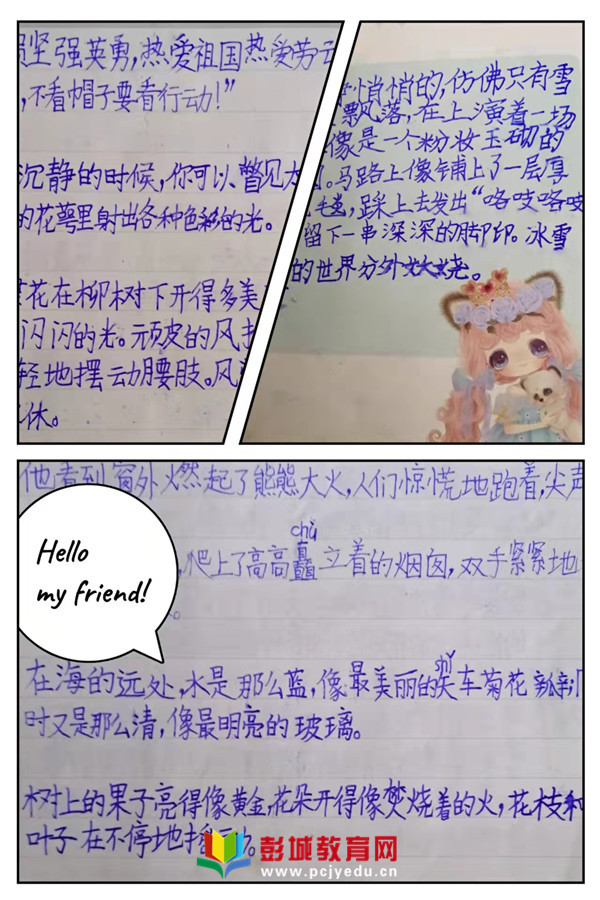 坚强英勇,热爱祖国热爱劳云
,不看帽子要看行动!”
沉静的时候,你可以、瞥见
的花萼里射出各种色彩的光。
花在柳树下开得多美
闪闪的光。顽皮的风
轻地摆动腰肢。风
休。
悄悄的,仿佛只有雪
飘落,在上演着一场
像是一个粉妆玉砌的
。马路上像铺上了一层厚
毯,踩上去发出“咯吱咯吱
留下一串深深的脚印。冰雪
的世界分外妖娆。
他看到窗外燃起了熊熊大火,人们惊慌地跑着,尖声
Hello
my friend!
chù
爬上了高高矗立着的烟囱,双手紧紧地
。
shǐ
在海的远处,水是那么蓝,像最美丽的矢车菊花
时又是那么清,像最明亮的玻璃。
树上的果子亮得像黄金,花朵开得像焚烧着的火,花枝和
叶子在不停地摇动。
彭城教育网
www.pcjyedu.cn